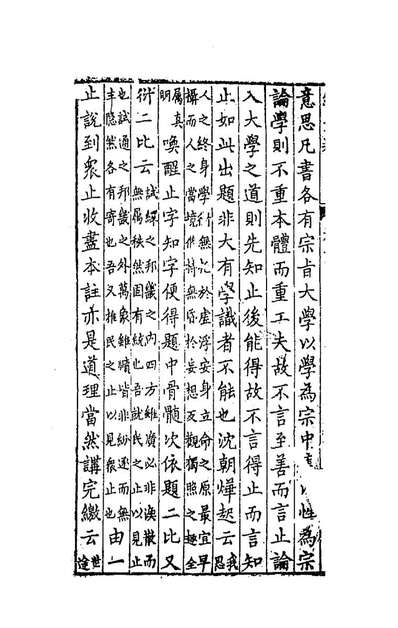 意思凡書各有宗旨大學以學為宗中 性為宗
論學則不重本體而重工夫故不言至善而言止論
入大學之道則先知止後能得故不言得止而言知
止如此出題非大有學識者不能也沈朝燁起云我思
人之終身學行無 於虛浮安身立命之原最宜早
攝而人之當境 持無 於妄想反觀獨照之 全
屬真
明 喚醒止字知字便得題中骨髓次依題二比又
衍二比云試繹之邦畿之内四方雖廣必非渙散而
無屬秩然固有統也吾就民之止以見止
也試通之邦畿之外萬象雖 皆非紛逐而無
主隱然各有寄也吾又推民之止以見衆止也由一
止說到衆止收盡本註亦是道理當然講完繳云世途